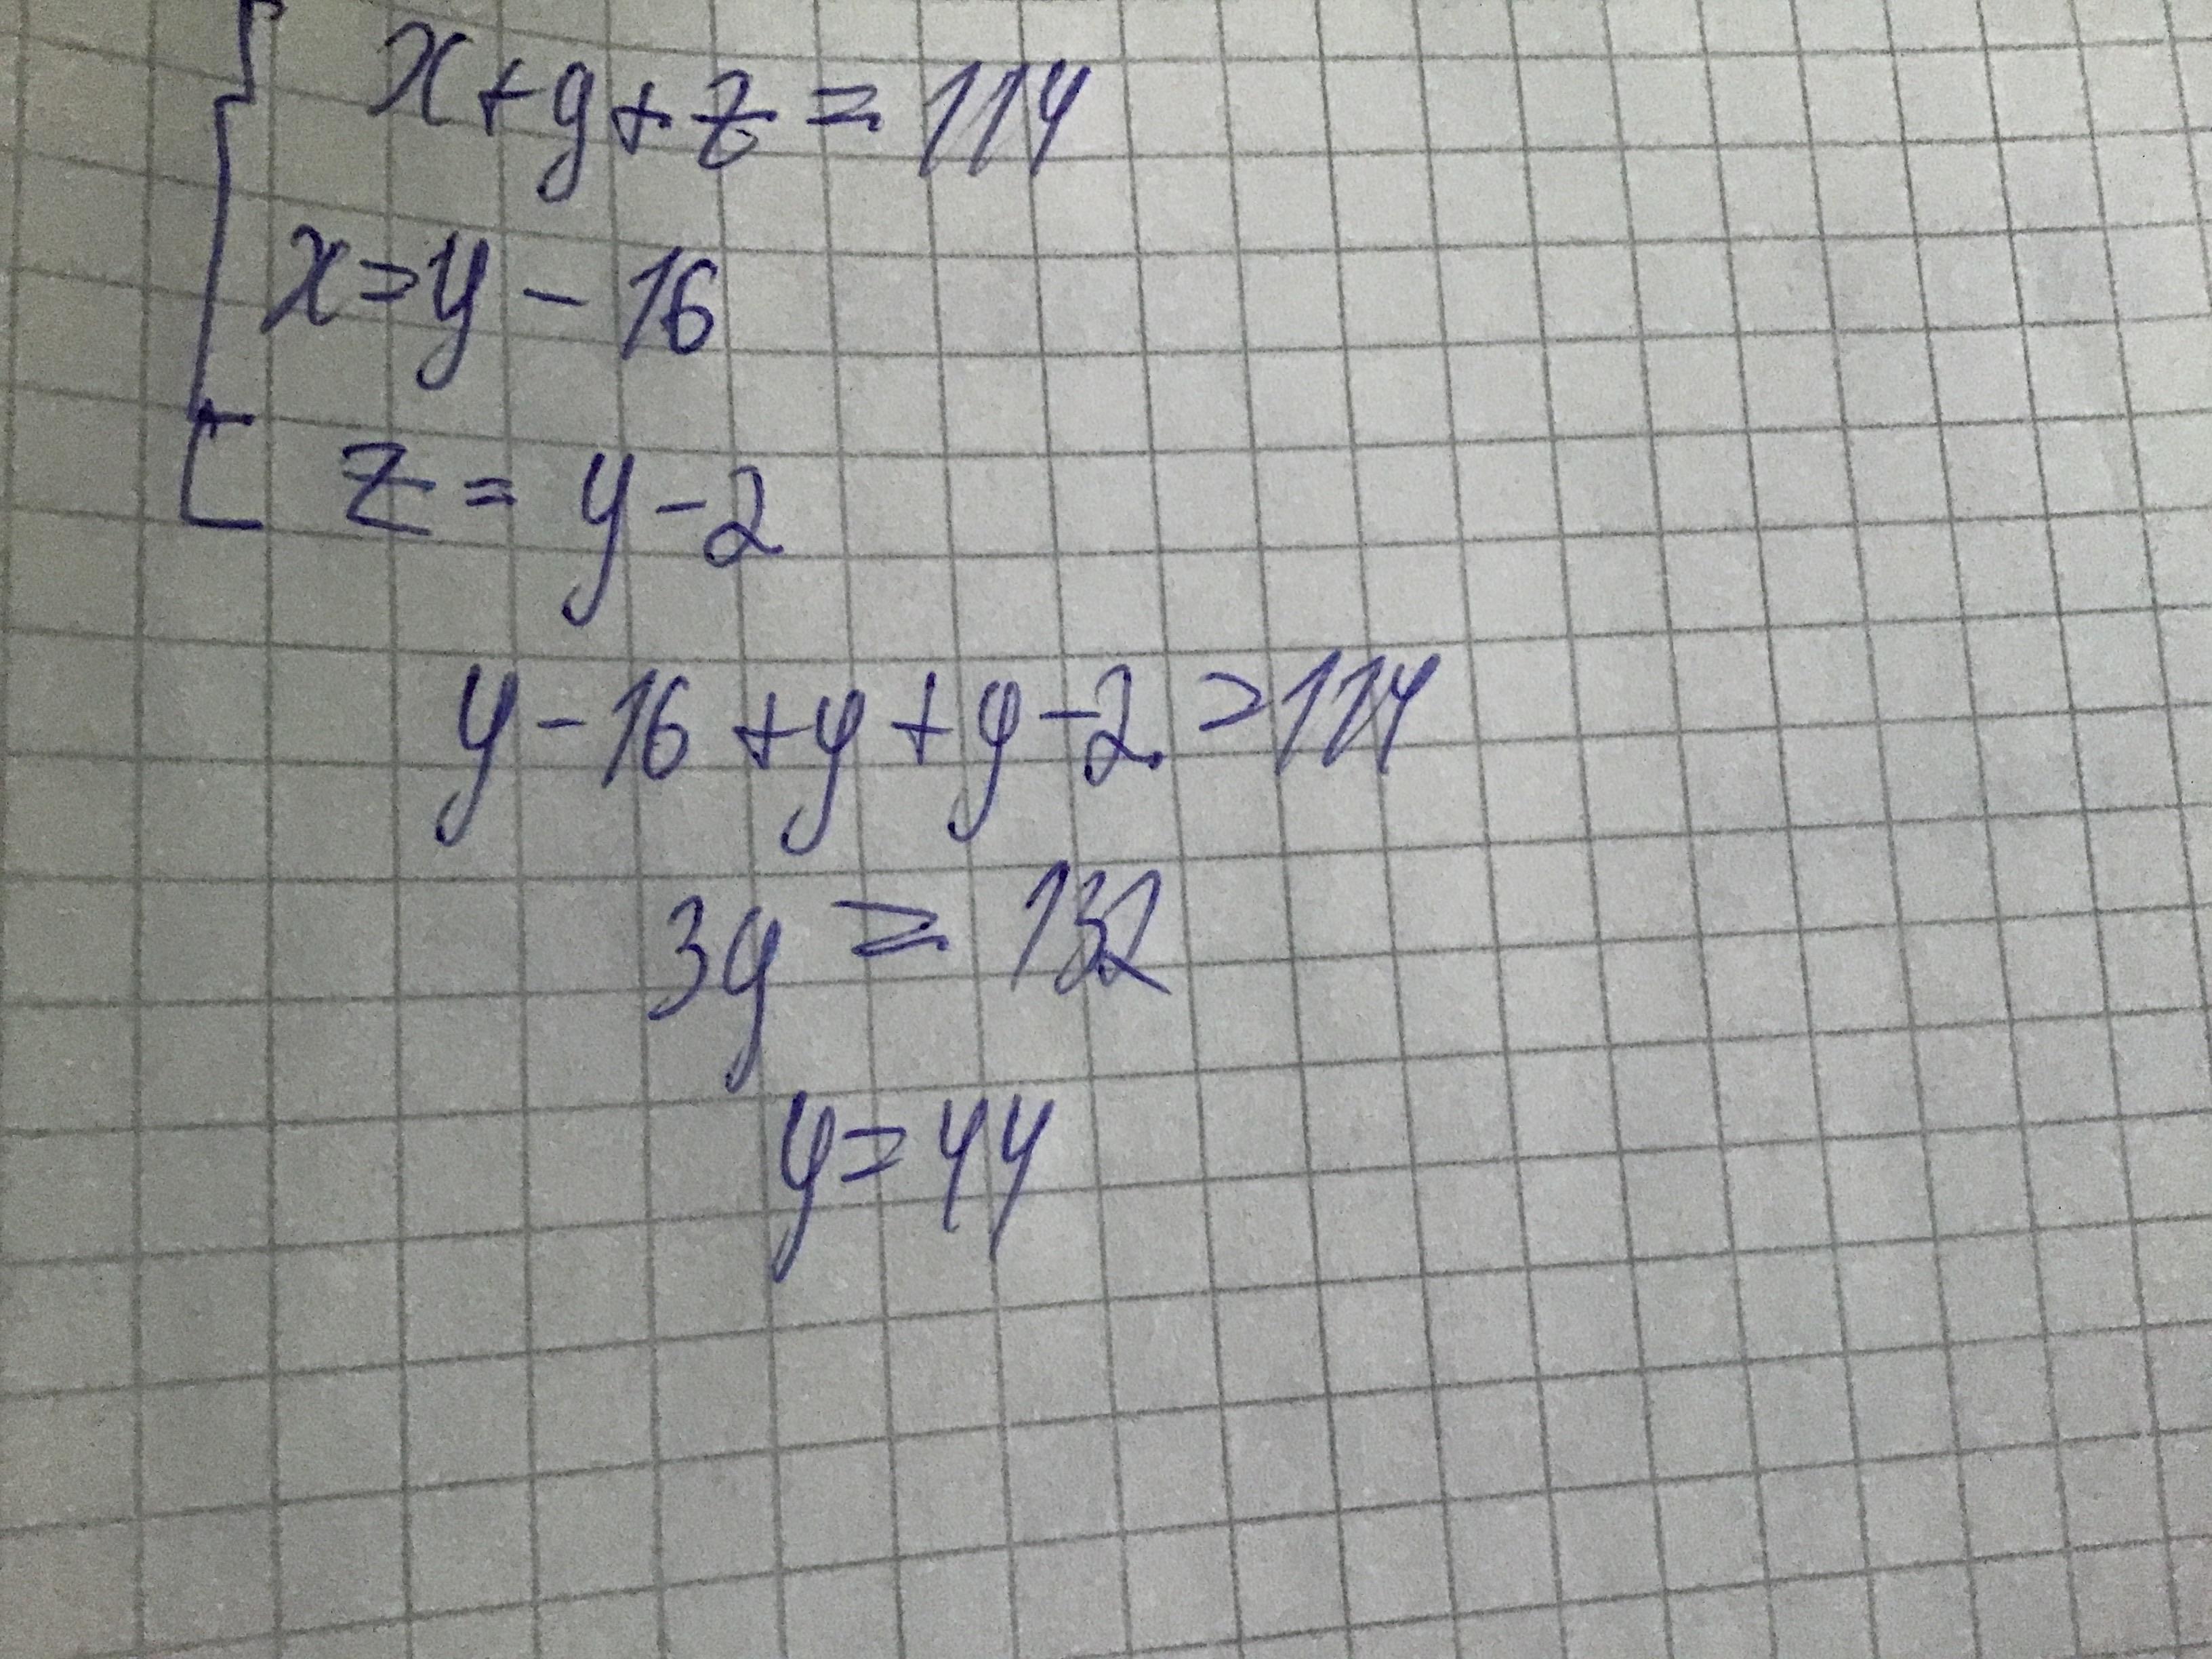 x+y+z=114
x=y-16
z=y-2
y-16+y+y-2=114
3y=132
y=44